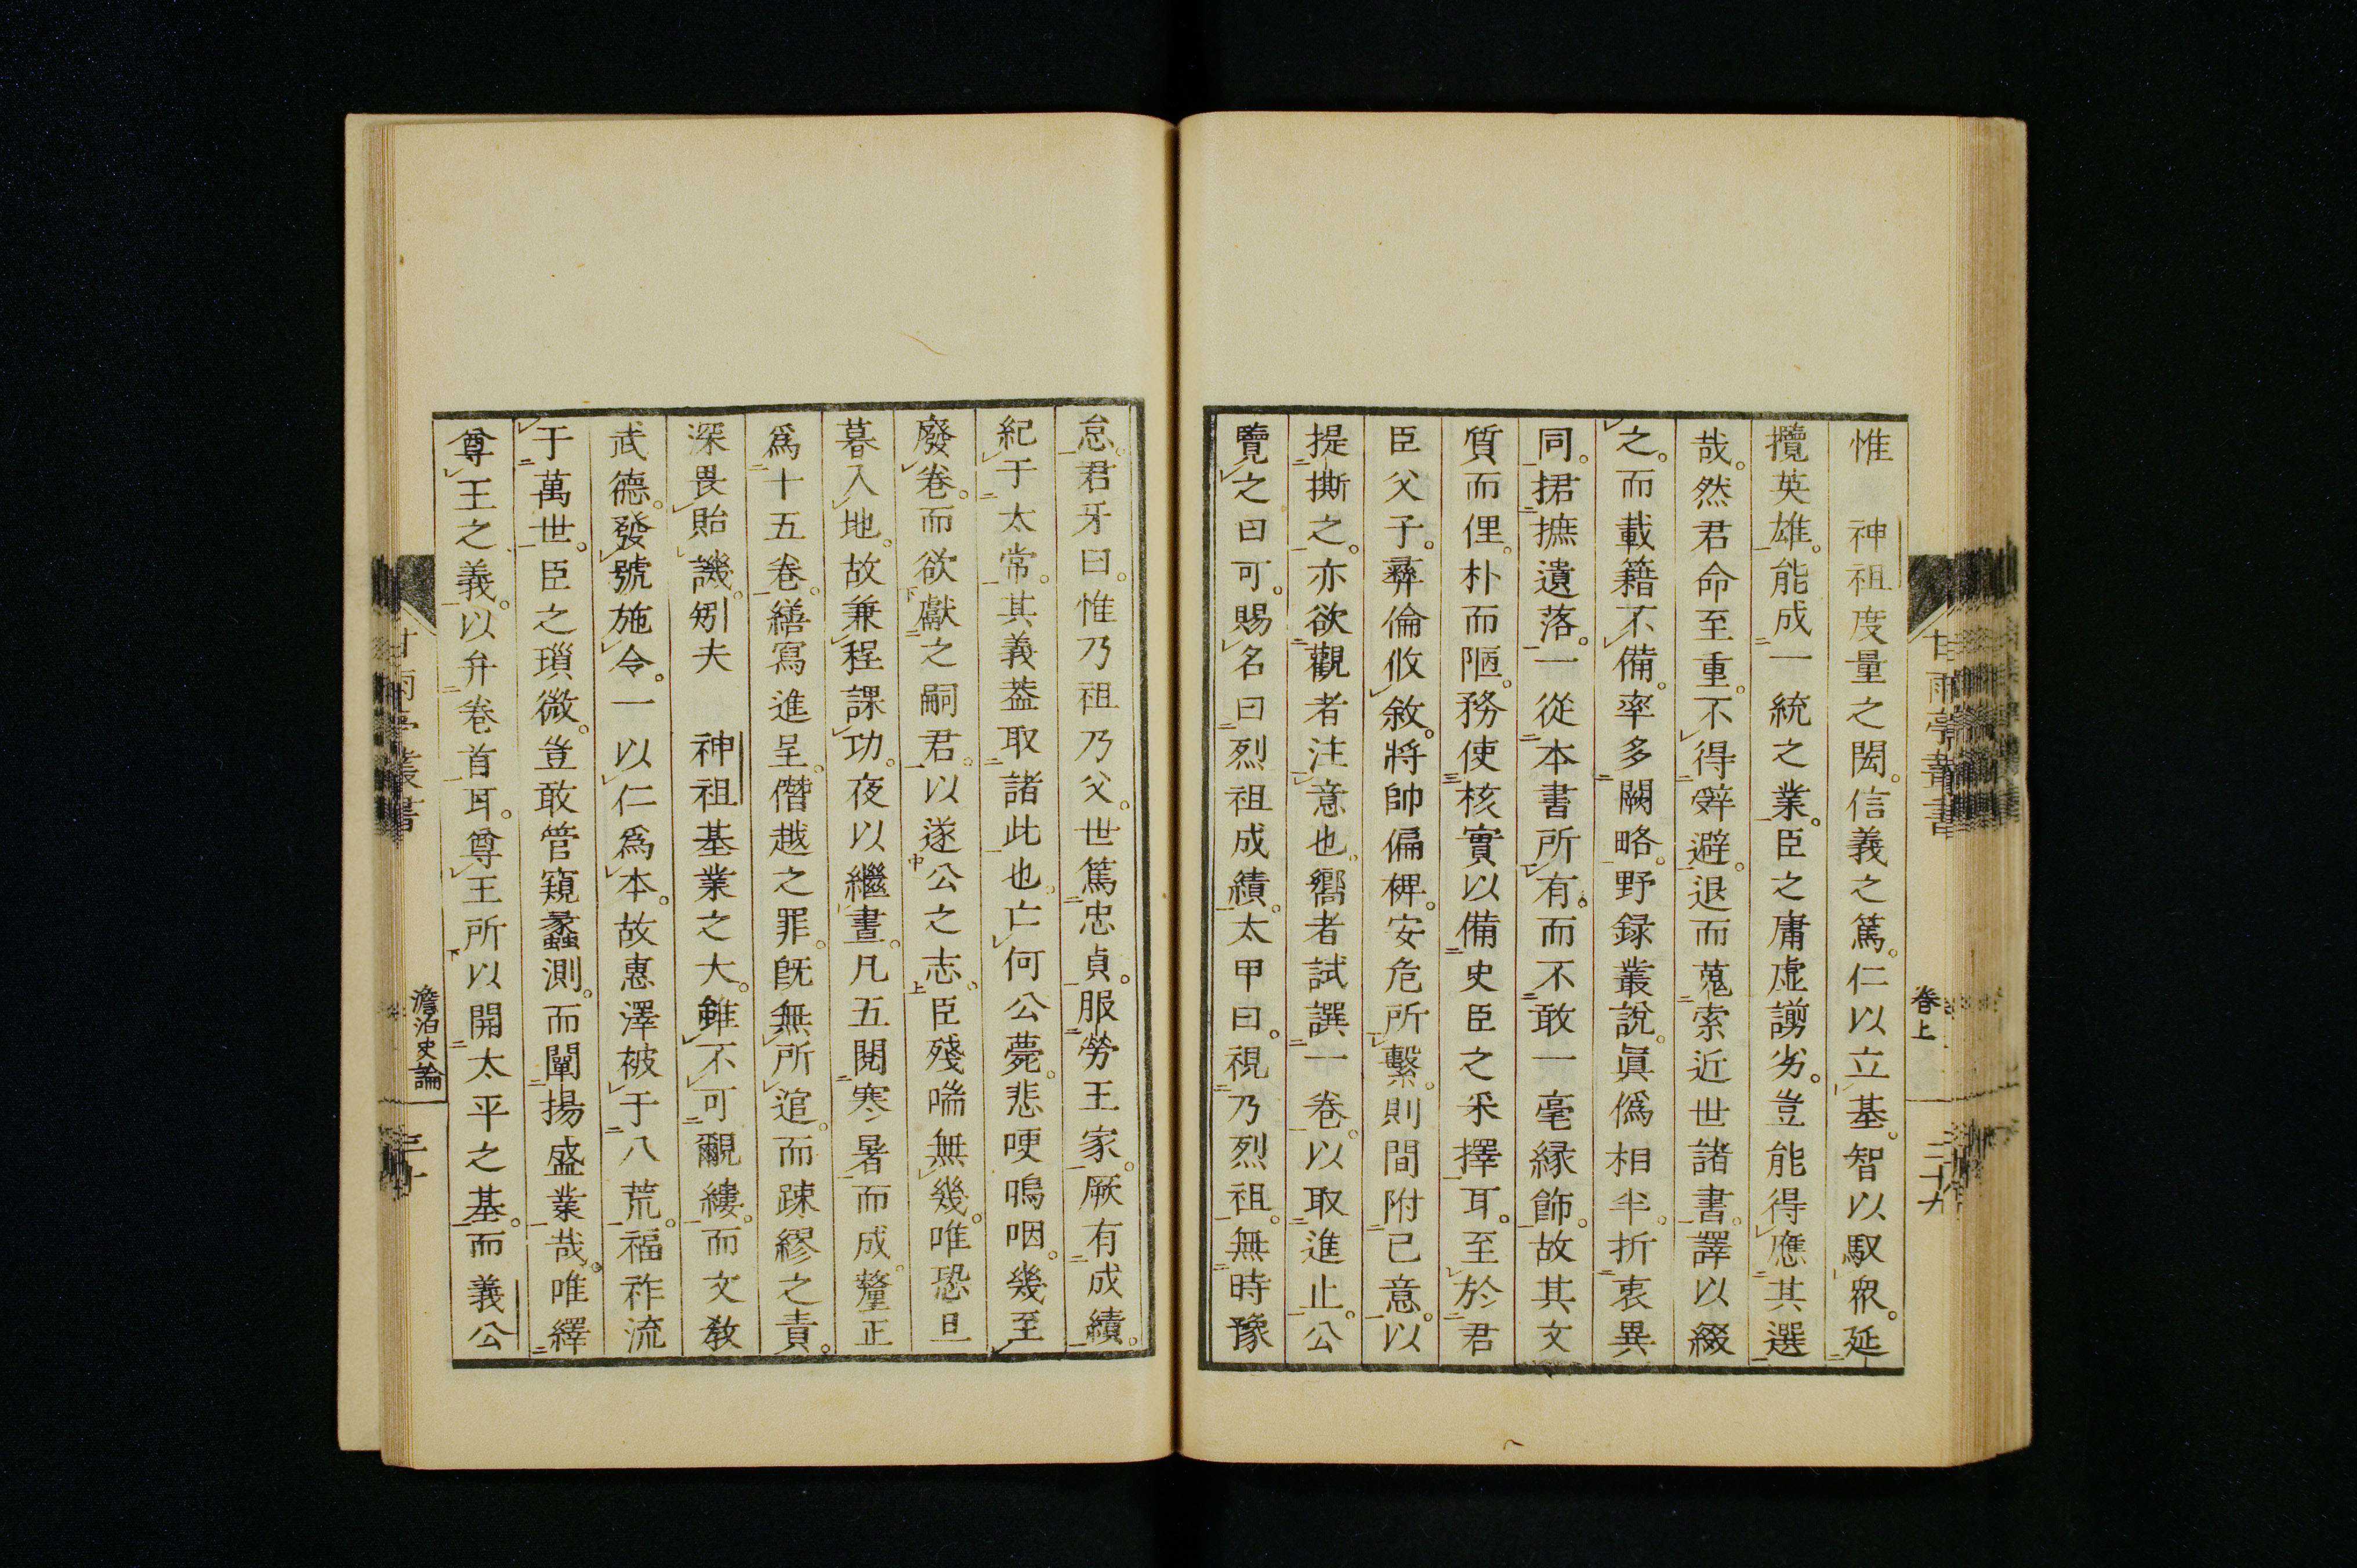 惟　神祖度量之閎。信義之篤。仁以立基。智以馭衆。延
攬英雄。能成一統之業。臣之庸虛謭劣。豈能得應其選
哉。然君命至重。不得辭避。退而蒐索近世諸書。譯以綴
之。而載籍不備。率多闕略。野錄叢說。眞僞相半。折衷異
同。捃摭遺落。一從本書所有。而不敢一毫緣飾。故其文
質而俚。朴而陋。務使核實以備史臣之采擇耳。至於君
臣父子。彝倫攸敘。將帥偏裨。安危所繫。則間附己意。以
提撕之。亦欲觀者注意也。嚮者試譔一卷。以取進止。公
覽之曰可。賜名曰烈祖成績。太甲曰。視乃烈祖。無時豫
怠。君牙曰。惟乃祖乃父。世篤忠貞。服勞王家。厥有成績。
紀于太常。其義葢取諸此也。亡何公薨。悲哽嗚咽。幾至
廢卷。而欲獻之嗣君。以遂公之志。臣殘喘無幾。唯恐旦
暮入地。故兼程課功。夜以繼晝。凡五閱寒暑而成。釐正
爲十五卷。繕寫進呈。僭越之罪。旣無所逭。而踈繆之責。
深畏貽譏。矧夫　神祖基業之大。雖不可覼縷。而文教
武德。發號施令。一以仁爲本。故惠澤被于八荒。福祚流
于萬世。臣之瑣微。豈敢管窺蠡測。而闡揚盛業哉。唯繹
尊王之義。以弁卷首耳。尊王所以開太平之基。而義公
甘雨亭叢書
卷上
三十九
甘雨亭叢書
澹泊史論